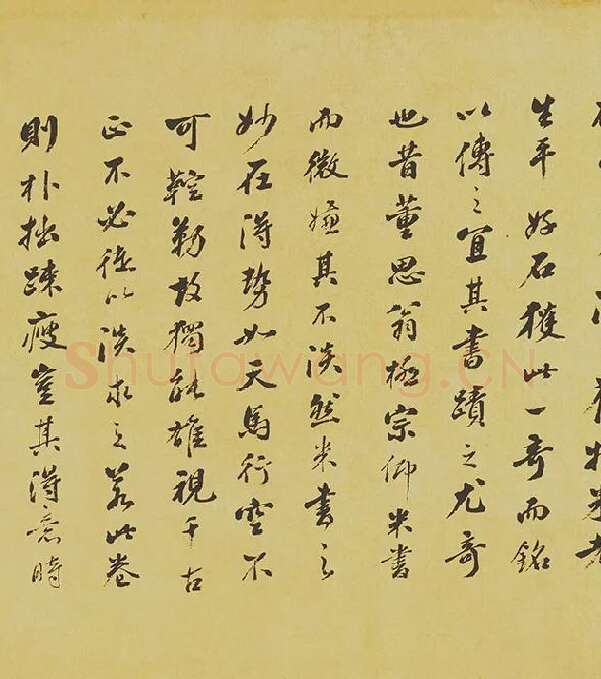 生平好石獲此一奇而銘
以傳之宜其書蹟之尤奇
也昔董思翁極宗仰米書
而微嫌其不淡然米書之
妙在得勢如天馬行空不
可鞚勒故獨能雄視千古
正不必徒以淡求之若此卷
則朴拙踈瘦豈其得意時
Shufawang.CN